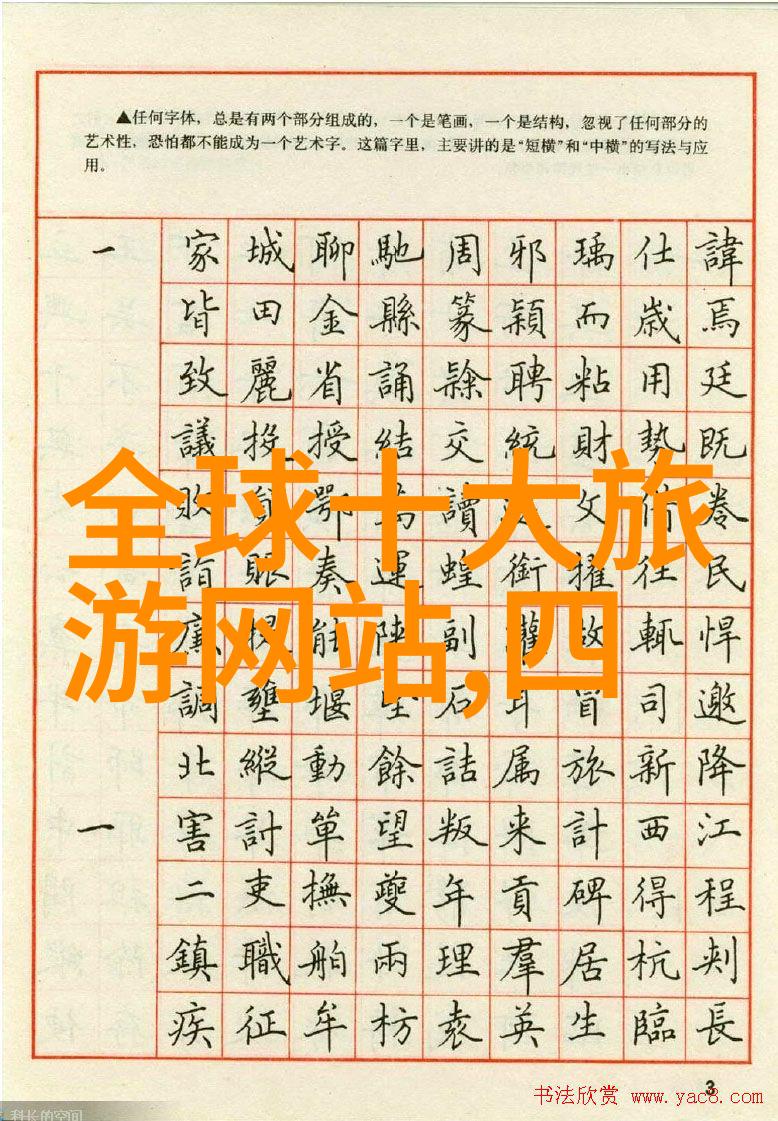 ▲任何字体，总是有两个部分组成的，一个是笔画，一个是结构，忽视了任何部分的
艺术性，恐怕都不能成为一个艺术字。这篇字里，主要讲的是“短横”和“中横”的写法与应
用。
一 家城聊馳周邪瑀仕諱
皆田金縣篆穎而歳焉
致麗省誦隙聘粘用廷
議投授結交統財勢既
鄂 讀 文 卷
詣賬奏運蝗銜擢往民
副 輒悍
調壅堰 石耳冒司邀
北縱動餘詰属旅新降
一 害討單望叛来計西得江
二吏撫夔年貢碑得程
鎮職舶兩理羣居杭刺
疾征牟枋袁英生臨長
全球十大旅
游网站,四
3
书法欣赏 www.yac8.com
科长的空间